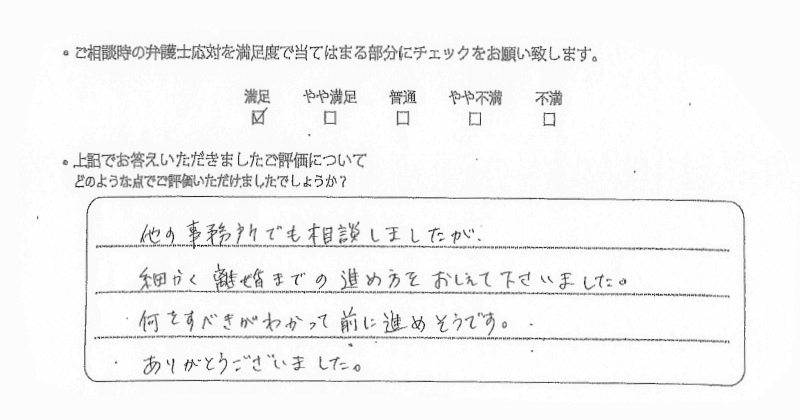 ・ご相談時の弁護士応対を満足度で当てはまる部分にチェックをお願い致します。
満足 やや満足 普通 やや不満 不満
☑ □ □ □ □
・上記でお答えいただきましたご評価について
どのような点でご評価いただけましたでしょうか？
他の事務所でも相談しましたが、
細かく離婚までの進め方をおしえて下さいました。
何をすべきがわかって前に進めそうです。
ありがとうございました。